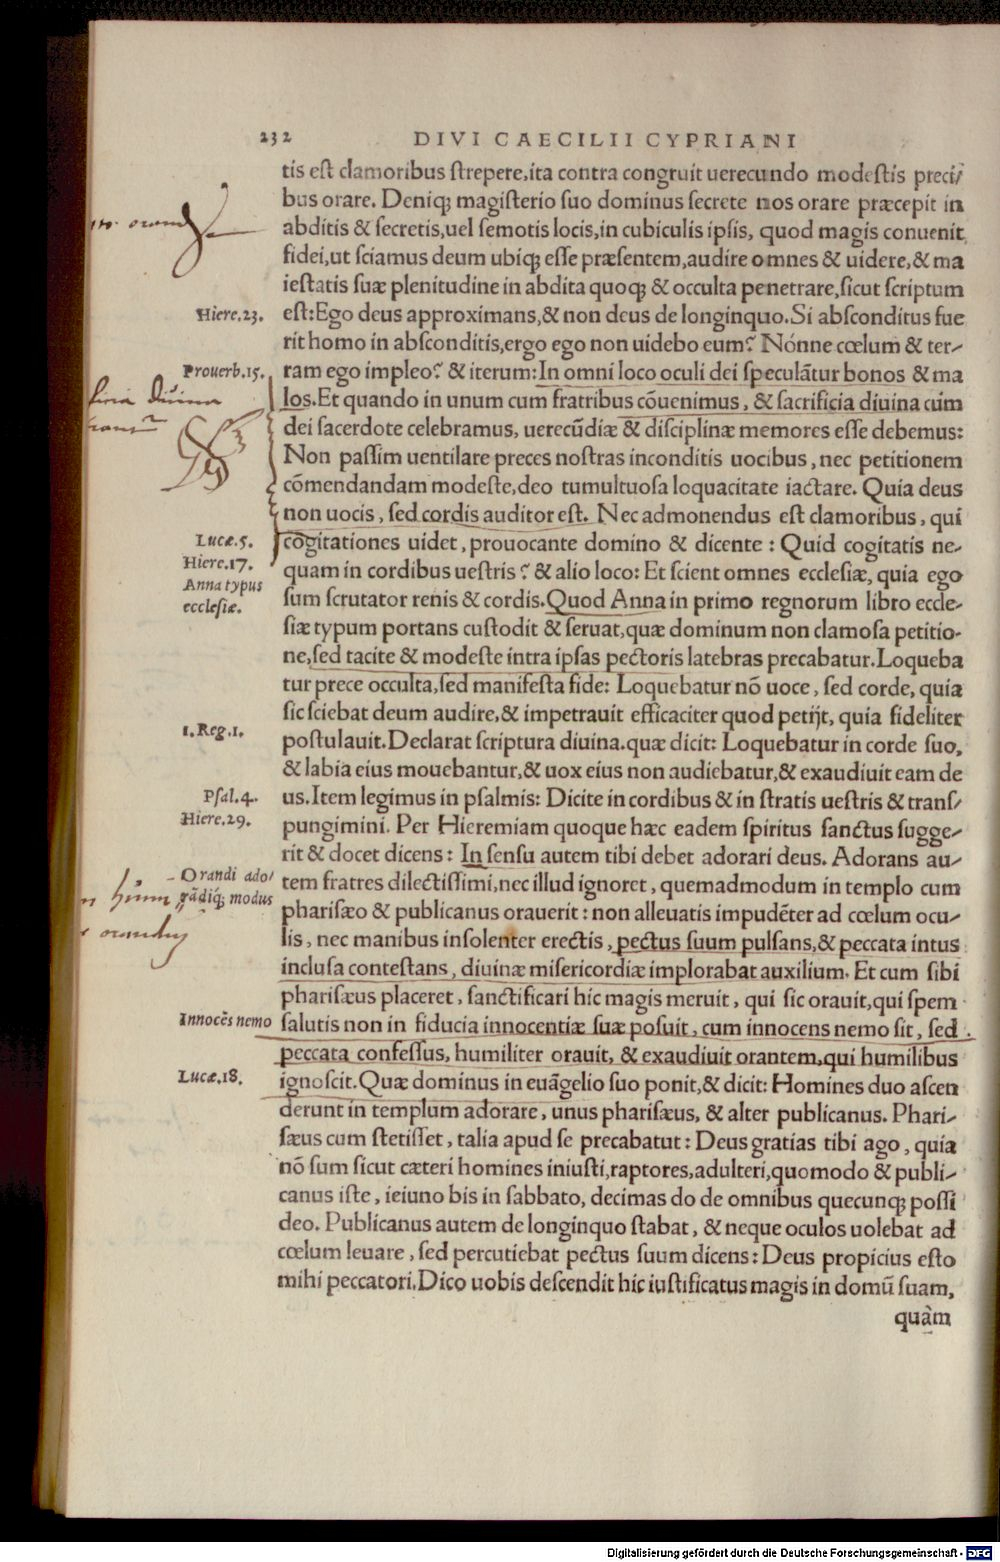 232 DIVI CAECILII CYPRIANI
tis eſt clamoribus ſtrepere,ita contra congruit uerecundo modeſtis preci/
bus orare. Deniqꝫ magiſterio ſuo dominus ſecrete nos orare præcepit in
orand
abditis & ſecretis,uel ſemotis locis,in cubiculis ipſis, quod magis conuenit
fidei,ut ſciamus deum ubiqꝫ eſſe præſentem,audire omnes & uidere,& ma
ieſtatis ſuæ plenitudine in abdita quoqꝫ & occulta penetrare,ſicut ſcriptum
Hiere.23.
eſt:Ego deus approximans,& non deus de longinquo.Si abſconditus fue
rit homo in abſconditis,ergo ego non uidebo eum? Nónne cœlum & ter-
Prouerb.15.
ram ego impleo? & iterum:In omni loco oculi dei ſpeculãtur bonos & ma
diuina
los.Et quando in unum cum fratribus cõuenimus, & ſacrificia diuina cùm
dei ſacerdote celebramus, uerecũdiæ & diſciplinæ memores eſſe debemus:
Non paſſim uentilare preces noſtras inconditis uocibus, nec petitionem
cõmendandam modeſte,deo tumultuoſa loquacitate iactare. Quia deus
non uocis, ſed cordis auditor eſt. Nec admonendus eſt clamoribus, qui
Lucæ.5.
cogitationes uidet, prouocante domino & dicente : Quid cogitatis ne-
Hiere.17.
quam in cordibus ueſtris? & alio loco: Et ſcient omnes eccleſiæ, quia ego
Anna typus
eccleſiæ.
ſum ſcrutator renis & cordis.Quod Anna in primo regnorum libro eccle-
ſiæ typum portans cuſtodit & ſeruat,quæ dominum non clamoſa petitio-
ne,ſed tacite & modeſte intra ipſas pectoris latebras precabatur.Loqueba
tur prece occulta,ſed manifeſta fide: Loquebatur nõ uoce, ſed corde, quia
ſic ſciebat deum audire,& impetrauit efficaciter quod petijt, quia fideliter
1.Reg.1.
poſtulauit.Declarat ſcriptura diuina.quæ dicit: Loquebatur in corde ſuo,
& labia eius mouebantur,& uox eius non audiebatur,& exaudiuit eam de
Pſal.4.
us.Item legimus in pſalmis: Dicite in cordibus & in ſtratis ueſtris & tranſ/
Hiere.29.
pungimini. Per Hieremiam quoque hæc eadem ſpiritus ſanctus ſugge-
rit & docet dicens: In ſenſu autem tibi debet adorari deus. Adorans au-
Orandi ado/
rãdiqꝫ modus
tem fratres dilectiſſimi,nec illud ignoret, quemadmodum in templo cum
phariſæo & publicanus orauerit : non alleuatis impudẽter ad cœlum ocu-
lis, nec manibus inſolenter erectis, pectus ſuum pulſans,& peccata intus
incluſa conteſtans, diuinæ miſericordiæ implorabat auxilium. Et cum ſibi
phariſæus placeret, ſanctificari hic magis meruit, qui ſic orauit,qui ſpem
Innocẽs nemo
ſalutis non in fiducia innocentiæ ſuæ poſuit, cum innocens nemo ſit, ſed
peccata confeſſus, humiliter orauit, & exaudiuit orantem,qui humilibus
Lucæ.18.
ignoſcit.Quæ dominus in euãgelio ſuo ponit,& dicit: Homines duo aſcen
derunt in templum adorare, unus phariſæus, & alter publicanus. Phari-
ſæus cum ſtetiſſet, talia apud ſe precabatut : Deus gratias tibi ago, quia
nõ ſum ſicut cæteri homines iniuſti,raptores,adulteri,quomodo & publi-
canus iſte, ieiuno bis in ſabbato, decimas do de omnibus quecunqꝫ poſſi
deo. Publicanus autem de longinquo ſtabat, & neque oculos uolebat ad
cœlum leuare, ſed percutiebat pectus ſuum dicens: Deus propicius eſto
mihi peccatori.Dico uobis deſcendit hic iuſtificatus magis in domũ ſuam,
quàm
Digitalisierung gefördert durch die Deutsche Forschungsgemeinschaft - DFG